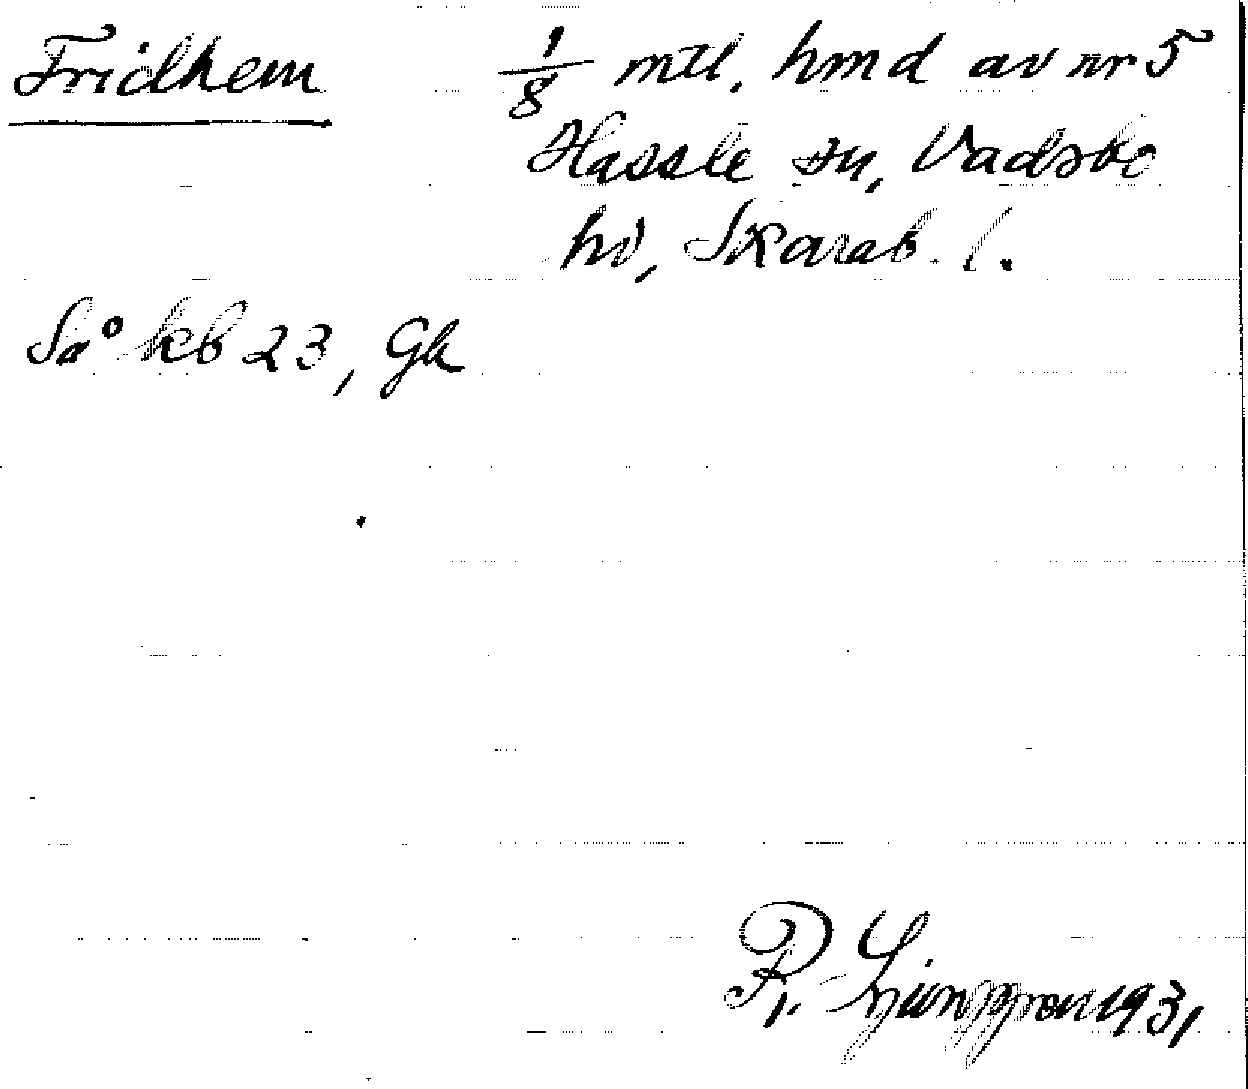 Fridhem 1/8 mtl. hmd av nr 5
Hassle sn, Vadsbo
hd, Skarab. l.
Så kb 23, Gk
R. Ljunggren 1931